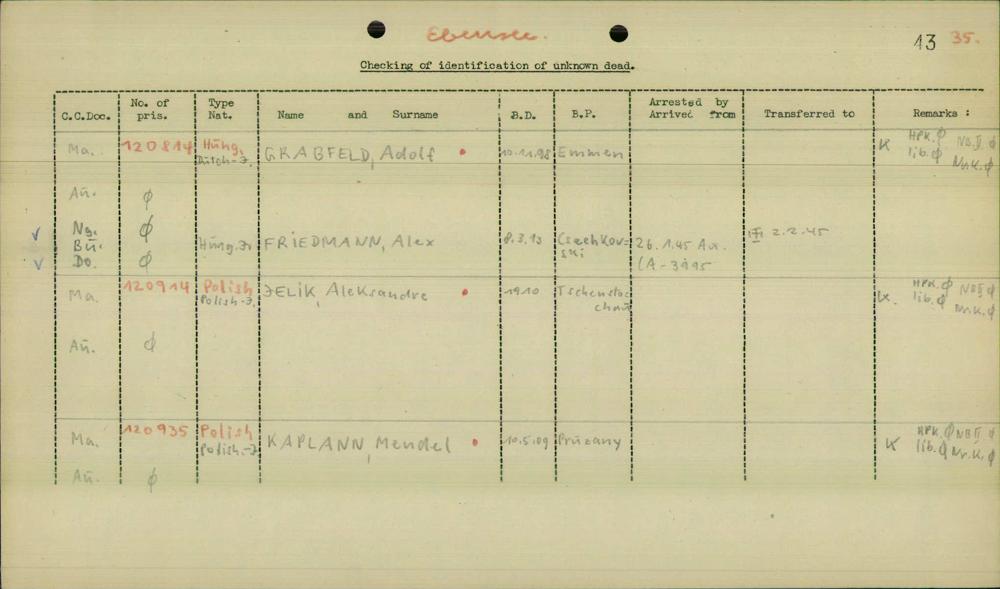 Ebensee.
43 35.
Checking of identification of unknown dead.
C.C.Doc. No. of pris. Type Nat. Name and Surname B.D. B.P. Arrested by Arrived from Transferred to Remarks :
Ma. 120814 Hung. GRABFELD, Adolf 10.11.98 Emmen K HPK.ϕ NB.II ϕ
Dutch-J. lib.ϕ Nr.K.ϕ
Au. ϕ
Ng. ϕ
Bu. Hung.J. FRIEDMANN, Alex 8.3.13 Czechkov= 26.1.45 Au. III 2.2.45
ski
Do. ϕ (A-3995
Ma. 120914 Polish JELIK, Aleksandre 1910 Tschenstoc K. HPK.ϕ NBII ϕ
Polish-J. chau lib.ϕ Nr.K.ϕ
Au. ϕ
Ma. 120935 Polish KAPLANN, Mendel 10.5.09 Pruzany K HPK.ϕ NBII ϕ
Polish.-J lib.ϕ Nr.K.ϕ
Au. ϕ